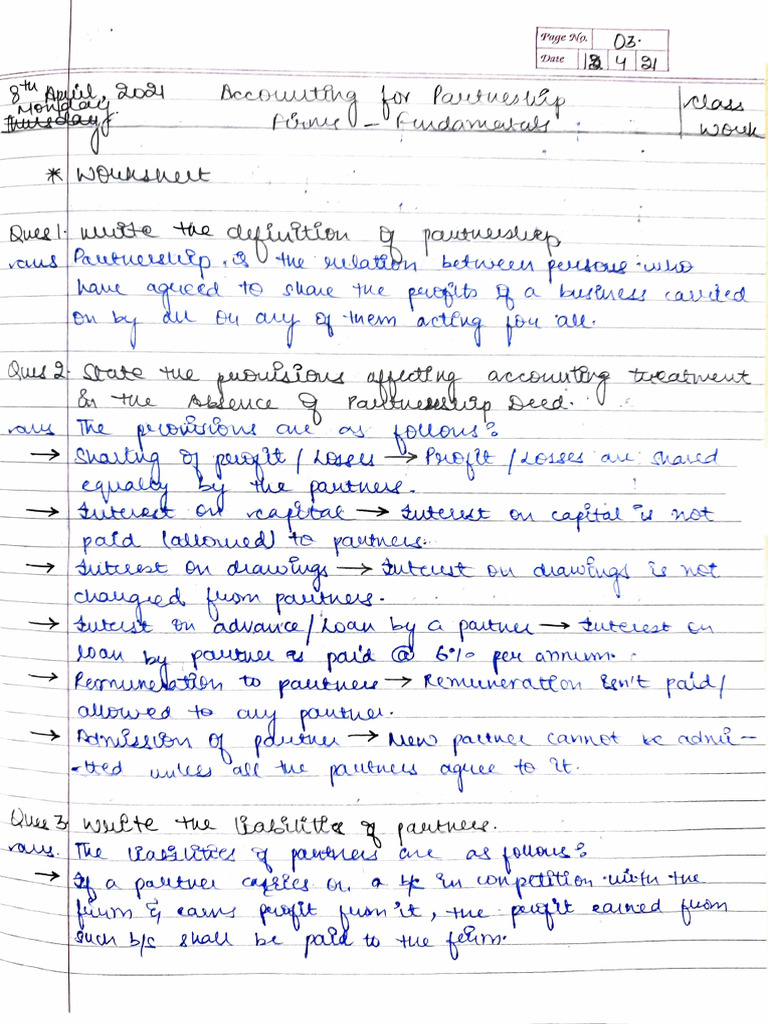 Page No. 03.
Date 12 4 21
8th April, 2021 Accounting for Partnership class
Monday Firms - Fundamentals work
Thursday
* Worksheet
Ques 1. Write the definition of partnership
ans Partnership is the relation between persons who
have agreed to share the profits of a business carried
on by all or any of them acting for all.
Ques 2. State the provisions affecting accounting treatment
in the Absence of Partnership Deed.
ans The provisions are as follows:
→ Sharing of profit / Losses → Profit / Losses are shared
equally by the partners.
→ Interest on capital → Interest on capital is not
paid (allowed) to partners.
→ Interest on drawings → Interest on drawings is not
charged from partners.
→ Interest on advance/Loan by a partner → Interest on
loan by partner is paid @ 6% per annum.
→ Remuneration to partners → Remuneration isn't paid/
allowed to any partner.
→ Admission of partner → New partner cannot be admi-
-tted unless all the partners agree to it.
Ques 3. Write the liabilities of partners.
ans. The liabilities of partners are as follows:
→ If a partner carries on a b/s in competition with the
firm & earns profit from it, the profit earned from
such b/s shall be paid to the firm.